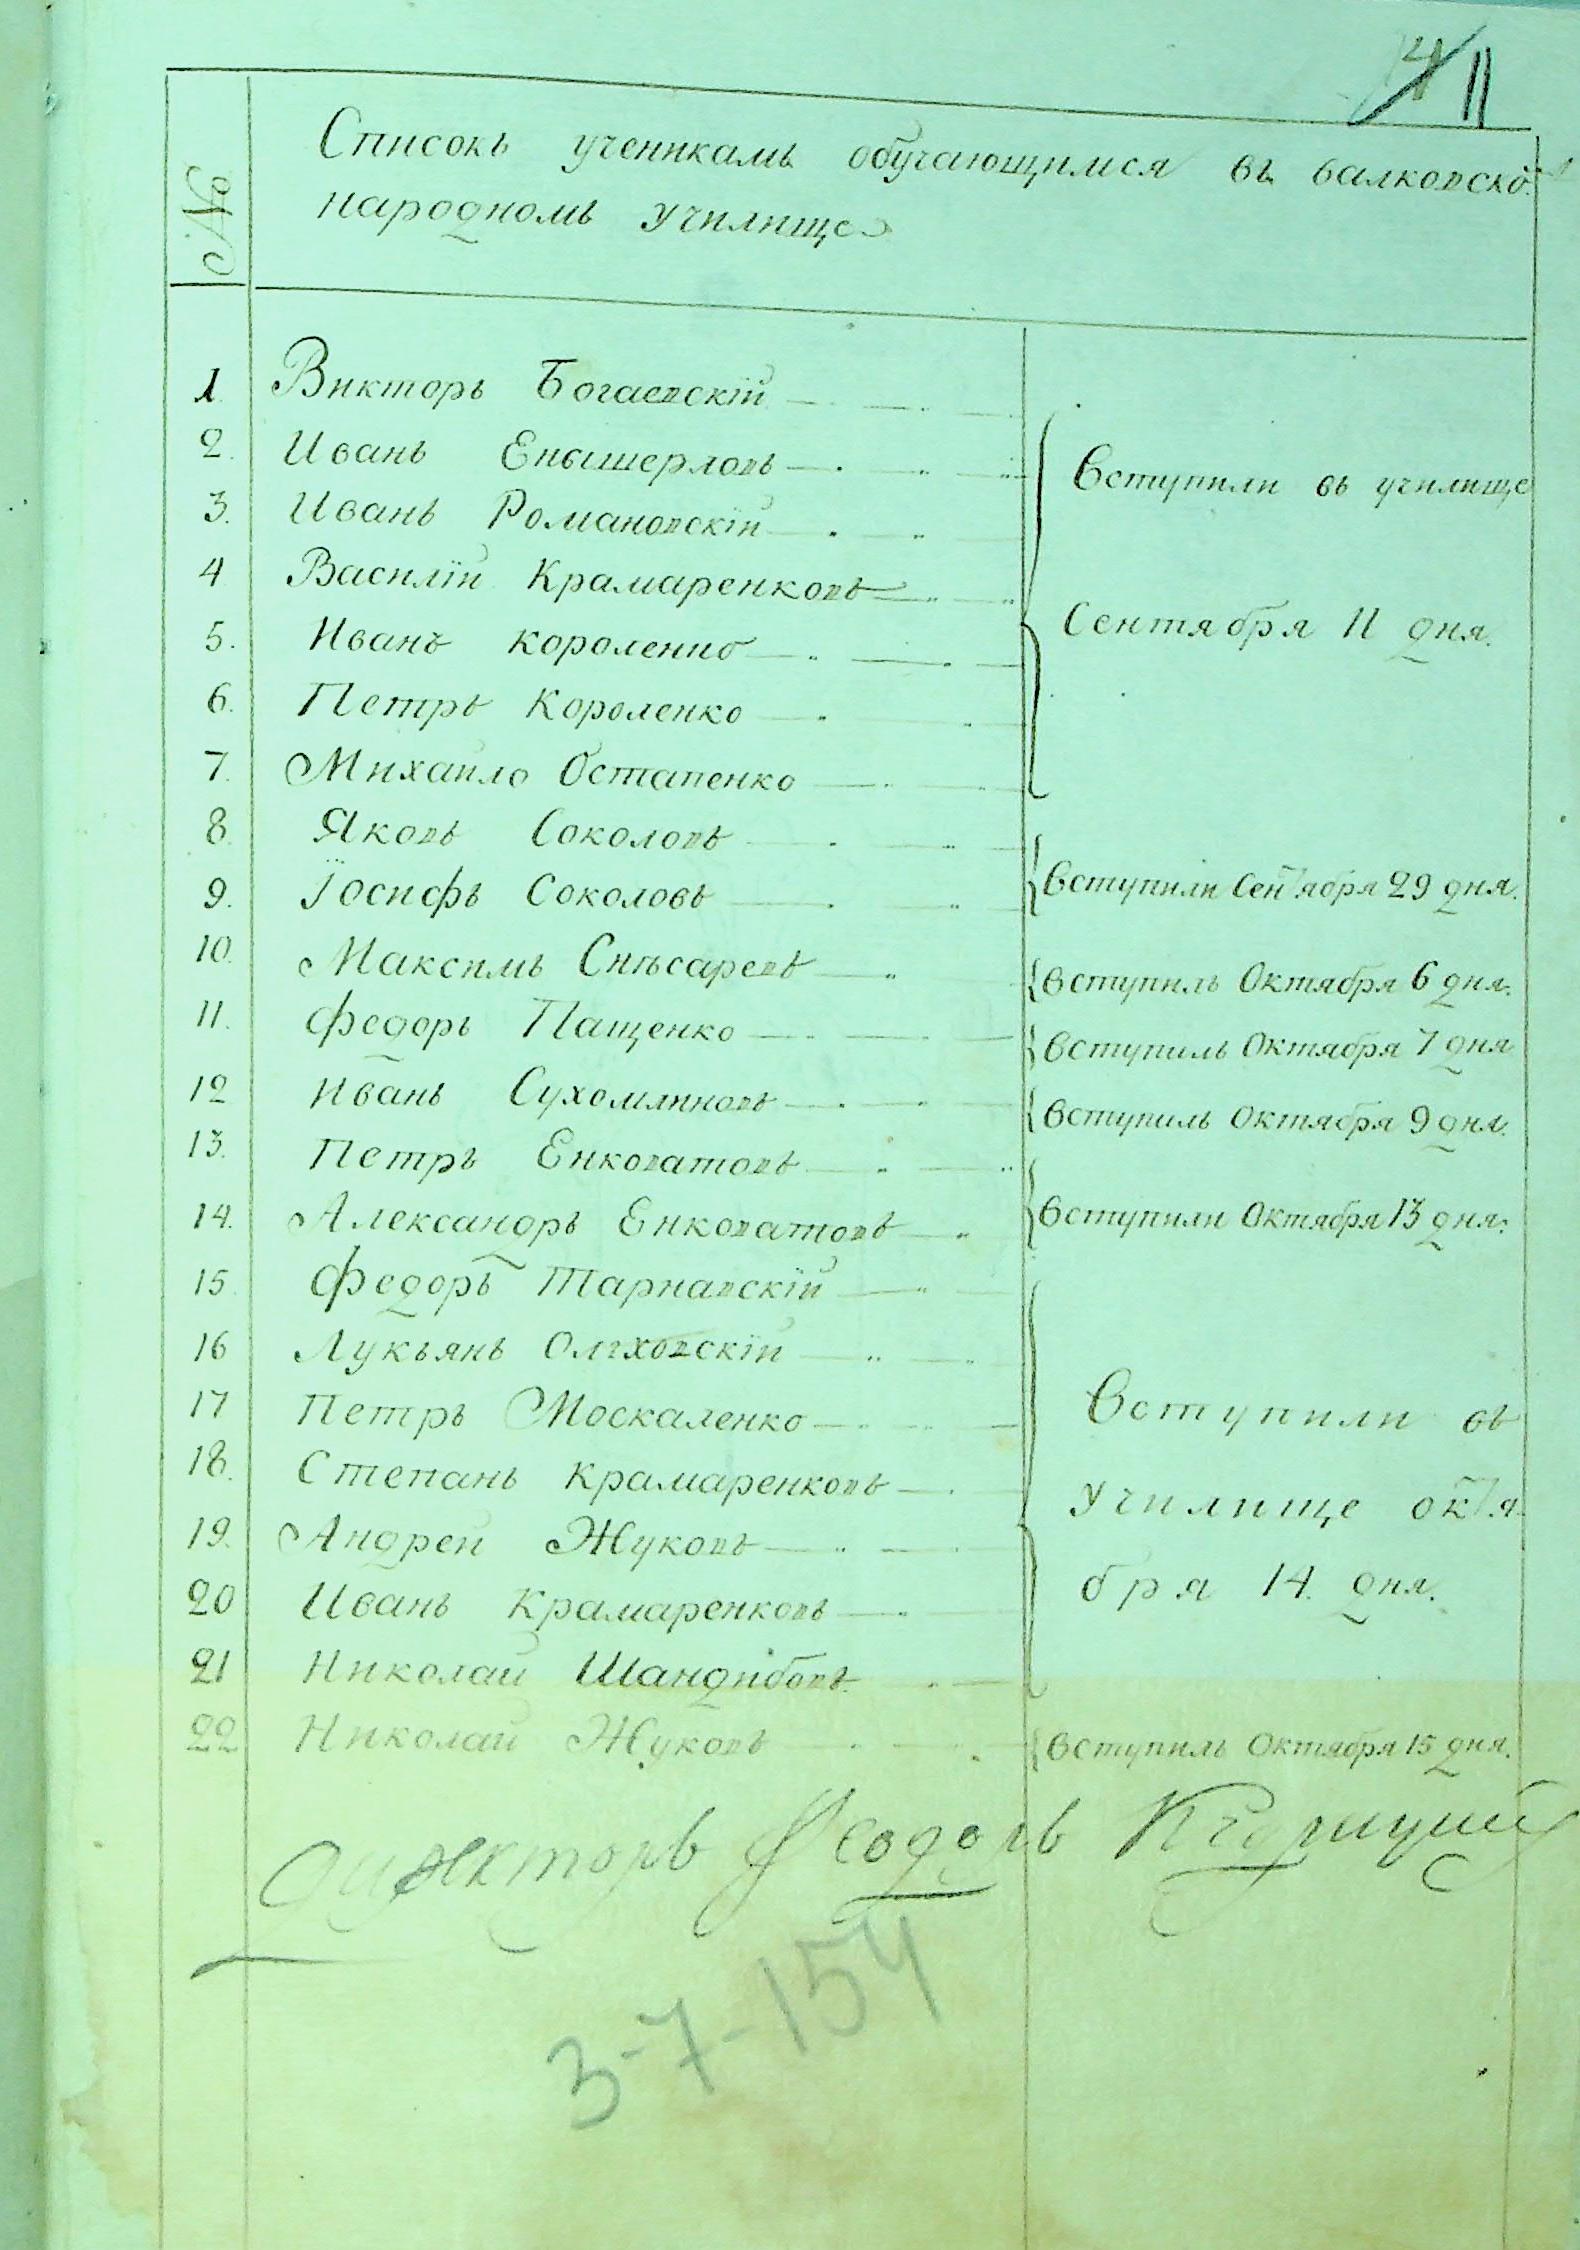 11
№
Списокъ ученикамъ обучающимся въ валковско
народномъ училище
1 Викторъ Богаевскій
2. Иванъ Енышерловъ
Вступили въ училище
3. Иванъ Романовскій
4 Василій Крамаренковъ
Сентября 11 дня.
5. Иванъ короленко
6. Петръ Короленко
7. Михайло Остапенко
8 Яковъ Соколовъ
Вступили Сентября 29 дня.
9. Іосифъ Соколовъ
10. Максимъ Снѣсаревъ
Вступилъ Октября 6 дня.
11. Федоръ Пащенко
Вступилъ Октября 7 дня
12 Иванъ Сухомлиновъ
Вступилъ Октября 9 дня.
13. Петръ Енковатовъ
14. Александръ Енковатовъ
Вступили Октября 13 дня.
15 Федоръ Тарнавскій
16 Лукьянъ Олховскій
17 Петръ Москаленко
Вступили въ
18. Степанъ Крамаренковъ
училище октя
19. Андрей Жуковъ
20 Иванъ Крамаренковъ
бря 14. дня.
21 Николай Шандибовъ
22 Николай Жуковъ
Вступилъ Октября 15 дня.
Директоръ Феодоръ
3-7-154